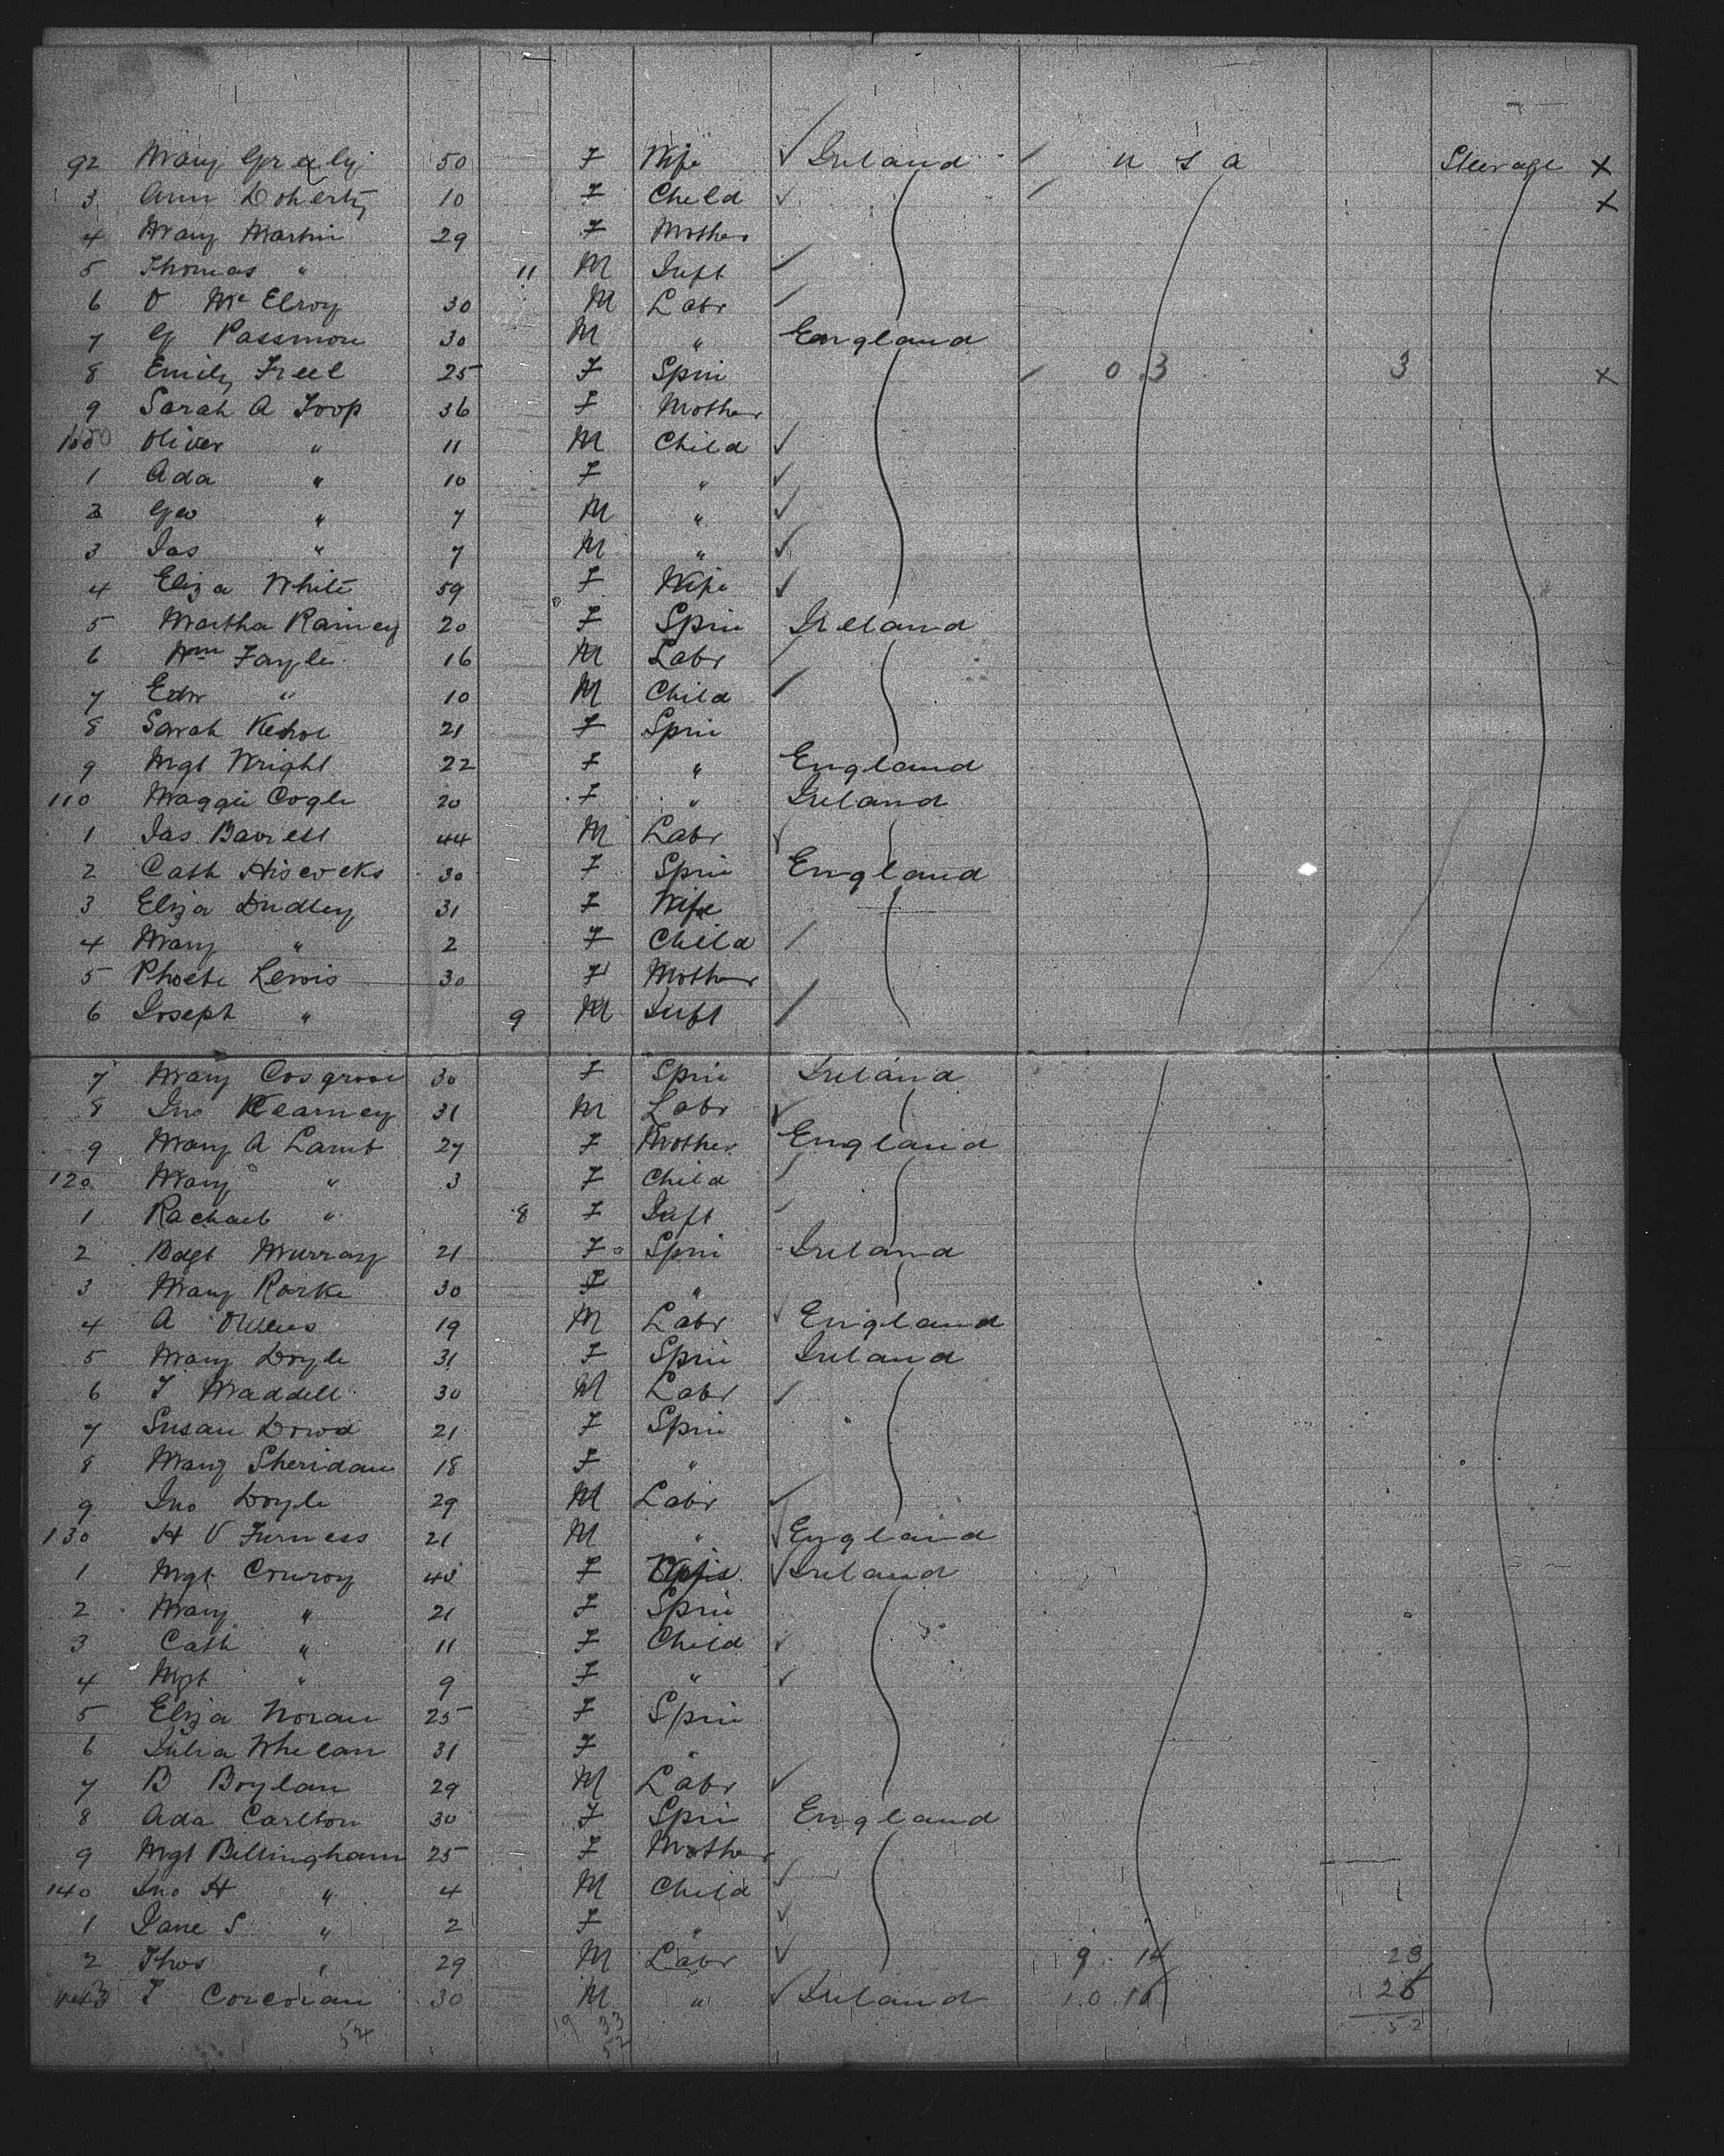 92 Mary Gr ly 50 F Wife ✓ Ireland / U S A Steerage x
3 Ann Doherty 10 F Child ✓ / x
4 Mary Martin 29 F Mother
5 Thomas " 11 M Inft /
6 O McElroy 30 M Labr /
7 G Passmore 30 M " England
8 Emily Freel 25 F Spin / 0 . 3 3 x
9 Sarah A Toop 36 F Mother
100 Oliver " 11 M Child ✓
1 Ada " 10 F " ✓
2 Geo " 7 M " ✓
3 Jas " 7 M " ✓
4 Eliza White 59 F Wife ✓
5 Martha Rainey 20 F Spin Ireland
6 Wm Fayle 16 M Labr /
7 Edw " 10 M Child /
8 Sarah Kehoe 21 F Spin
9 Mgt Wright 22 F " England
110 Maggie Cogle 20 F " Ireland
1 Jas Barrett 44 M Labr ✓
2 Cath Hiscocks 30 F Spin England
3 Eliza Dudley 31 F Wife
4 Mary " 2 F Child /
5 Phoebe Lewis 30 F Mother
6 Joseph " 9 M Inft /
7 Mary Cosgrove 30 F Spin Ireland
8 Jno Kearney 31 M Labr ✓
9 Mary A Lamb 27 F Mother England
120 Mary " 3 F Child /
1 Rachael " 8 F Inft /
2 Bdgt Murray 21 F Spin Ireland
3 Mary Rorke 30 F "
4 A Owens 19 M Labr ✓ England
5 Mary Doyle 31 F Spin Ireland
6 T Waddell 30 M Labr /
7 Susan Dowd 21 F Spin
8 Mary Sheridan 18 F "
9 Jno Doyle 29 M Labr ✓
130 H V Furness 21 M " ✓ England
1 Mgt Conroy 43 F Wife ✓ Ireland
2 Mary " 21 F Spin
3 Cath " 11 F Child ✓
4 Mgt " 9 F " ✓
5 Eliza Noran 25 F Spin
6 Julia Whelan 31 F "
7 B Boylan 29 M Labr ✓
8 Ada Carlton 30 F Spin England
9 Mgt Billingham 25 F Mother
140 Jno H " 4 M Child ✓
1 Jane S " 2 F " ✓
2 Thos " 29 M Labr ✓ 9 . 14 23
143 T Corcoran 30 M " ✓ Ireland 10.16 26
54 19 33 52
52